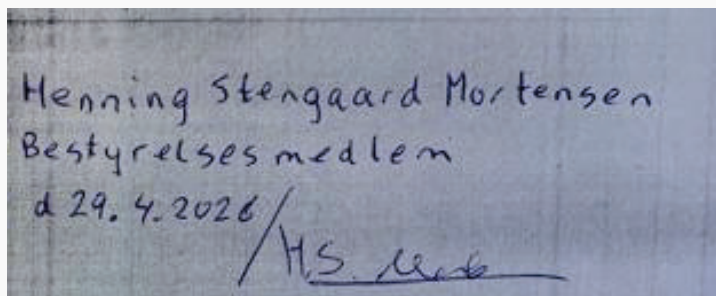 Henning Stengaard Mortensen
Bestyrelsesmedlem
d 29.4.2026/
H.S.